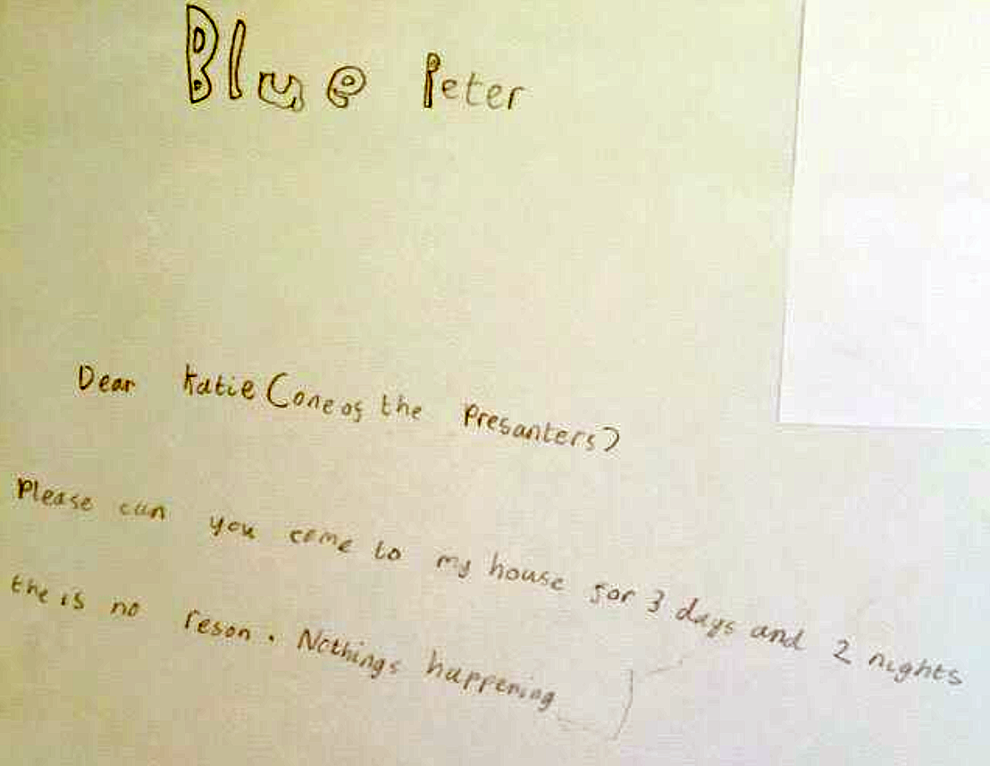 Blue Peter
Dear Katie (one of the Presanters)
Please can you come to my house for 3 days and 2 nights
the is no reson. Nothings happening